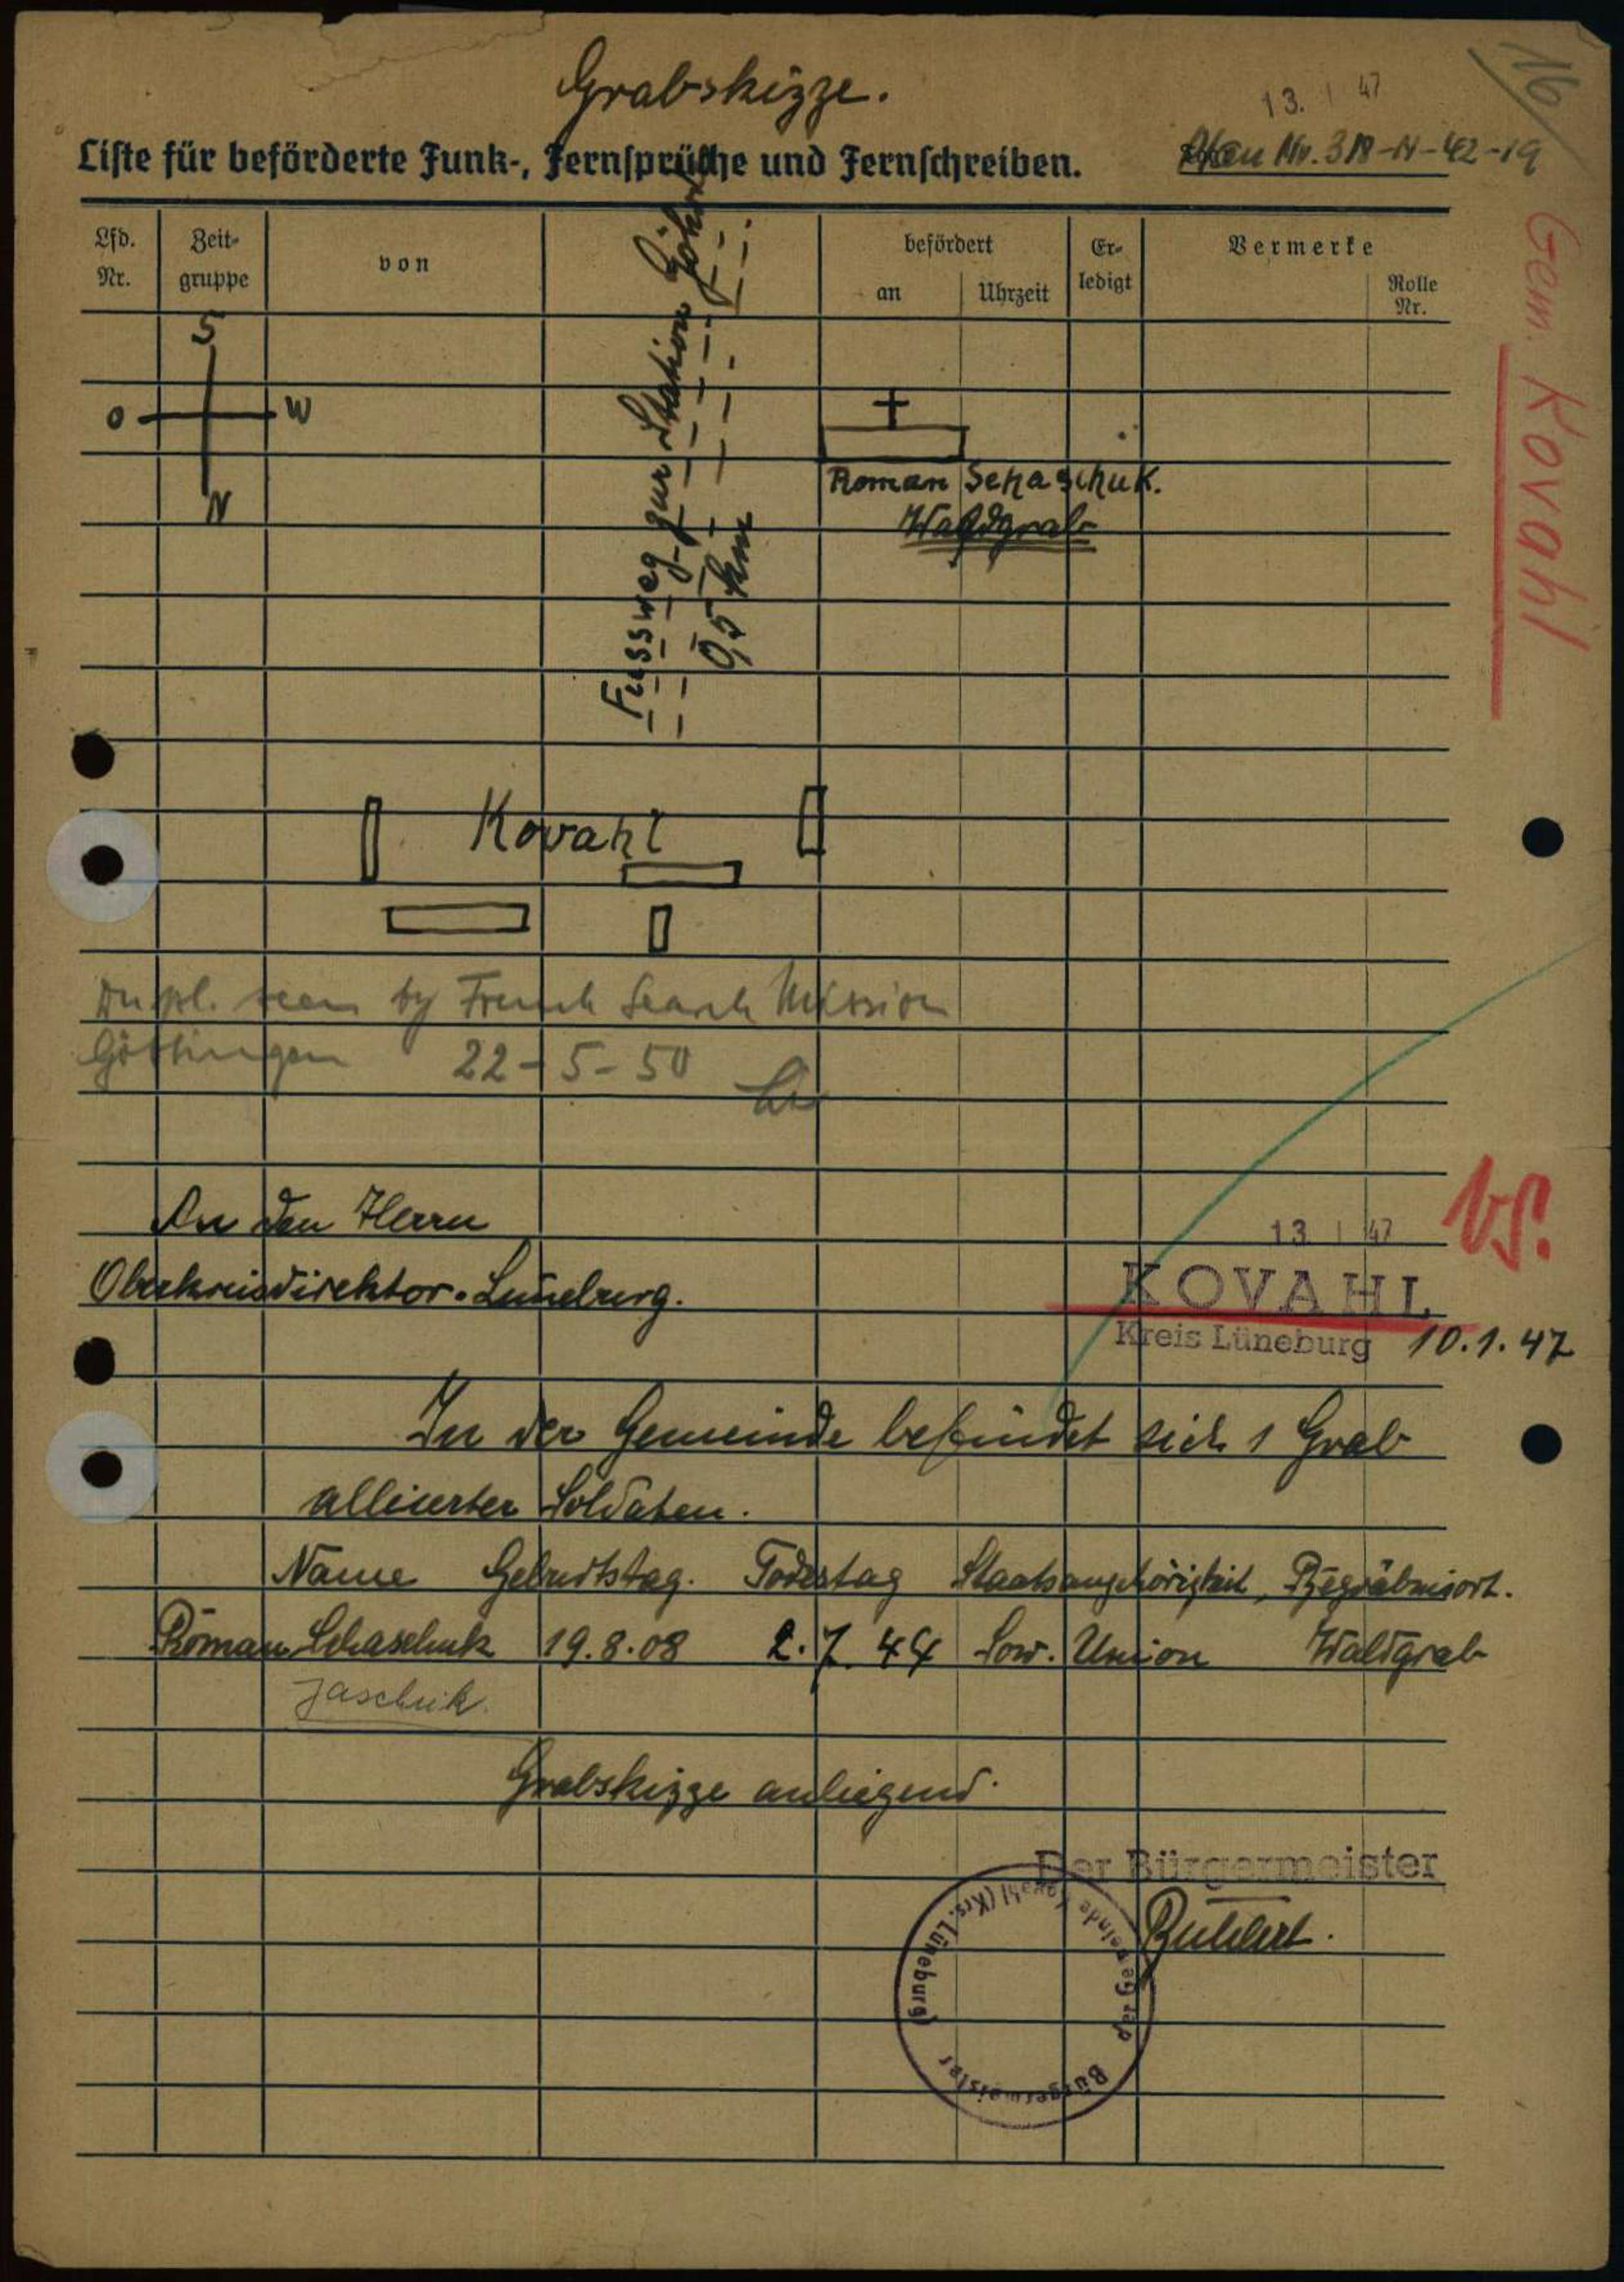 Grabskizze.
16
13. 1 47
Liste für beförderte Funk-, Fernsprüche und Fernschreiben.
Akten Nr. 318-N-42-19
Gem. Kovahl
Lfd. Nr.
Zeit-gruppe
von
befördert
an
Uhrzeit
Er-ledigt
Vermerke
Rolle Nr.
S
O
W
N
Fussweg zur Station
0,5 km
Roman Schaschuk.
Waldgrab
Kovahl
Dupl. seen by French Search Mission
Göttingen 22-5-50
An den Herrn
13 1 47
Oberkreisdirektor. Lüneburg.
KOVAHL
Kreis Lüneburg 10.1.47
In der Gemeinde befindet sich 1 Grab
alliierter Soldaten.
Name Geburtstag. Todestag Staatsangehörigkeit, Begräbnisort.
Roman Schaschuk 19.8.08 2.7.44 Sow. Union Waldgrab
Jaschuk.
Grabskizze anliegend.
Der Bürgermeister
Bürgermeister der Gemeinde Kovahl (Krs. Lüneburg)